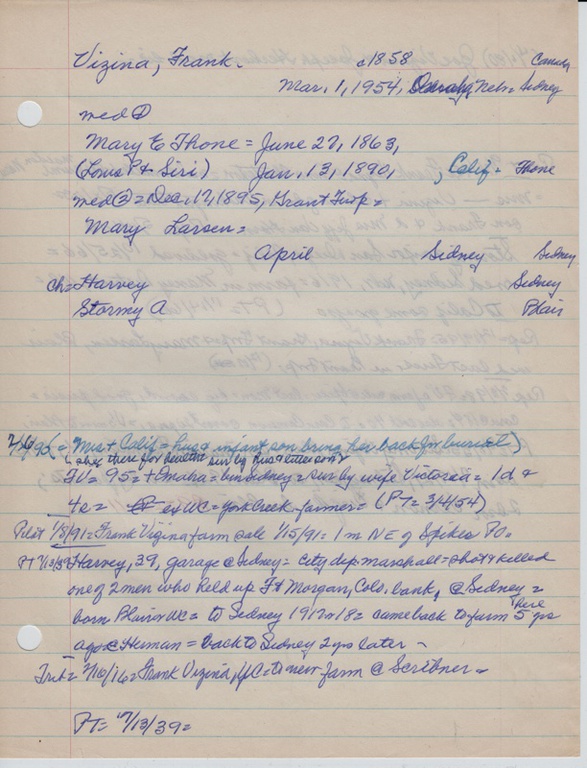 Vizina, Frank. c1858 Canada
Mar. 1, 1954, Omaha, Nebr. = Sidney
med ①
Mary E Thone = June 27, 1863,
(Louis P & Siri) Jan. 13, 1890, , Calif. = Thone
med ② = Dec. 17, 1895, Grant Twp =
Mary Larsen =
April Sidney Sidney
ch = Harvey Sidney
Stormy A Blair
Mrs + Calif = hus & infant son bring her back for burial)
(was there for health sur by hus & little son)
FV = 95 = + Omaha = bur Sidney = sur by wife Victoria = 1d &
ex WC = York Creek farmer = (PT = 3/4/54)
Pilot 1/8/91 = Frank Vizina farm sale 1/15/91 = 1m NE of Spikes PO.
PT 7/13/39 Harvey, 39, garage @ Sidney = city dep. marshall = shot & killed
one of 2 men who held up Ft Morgan, Colo. bank, @ Sidney =
born Blair WC = to Sidney 1917 or 18 = came back to farm here 5 yrs
ago @ Herman = back to Sidney 2 yrs later -
Trib = 2/10/16 = Frank Vizina, WC = to new farm @ Scribner -
PT = 7/13/39 =